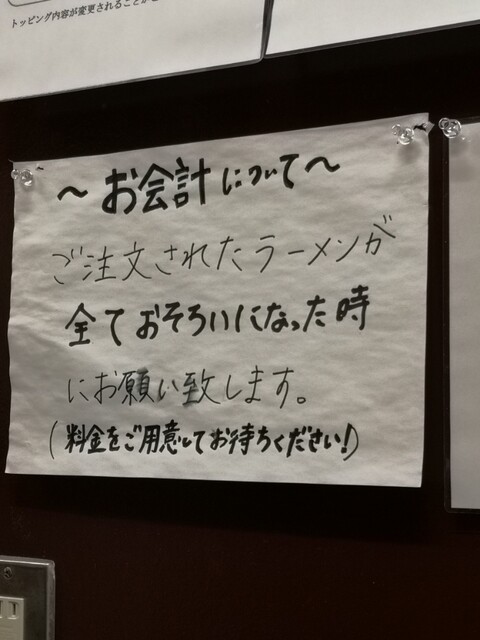 トッピング内容が変更されることがご
～お会計について～
ご注文されたラーメンが
全ておそろいになった時
にお願い致します。
(料金をご用意してお待ちください!)